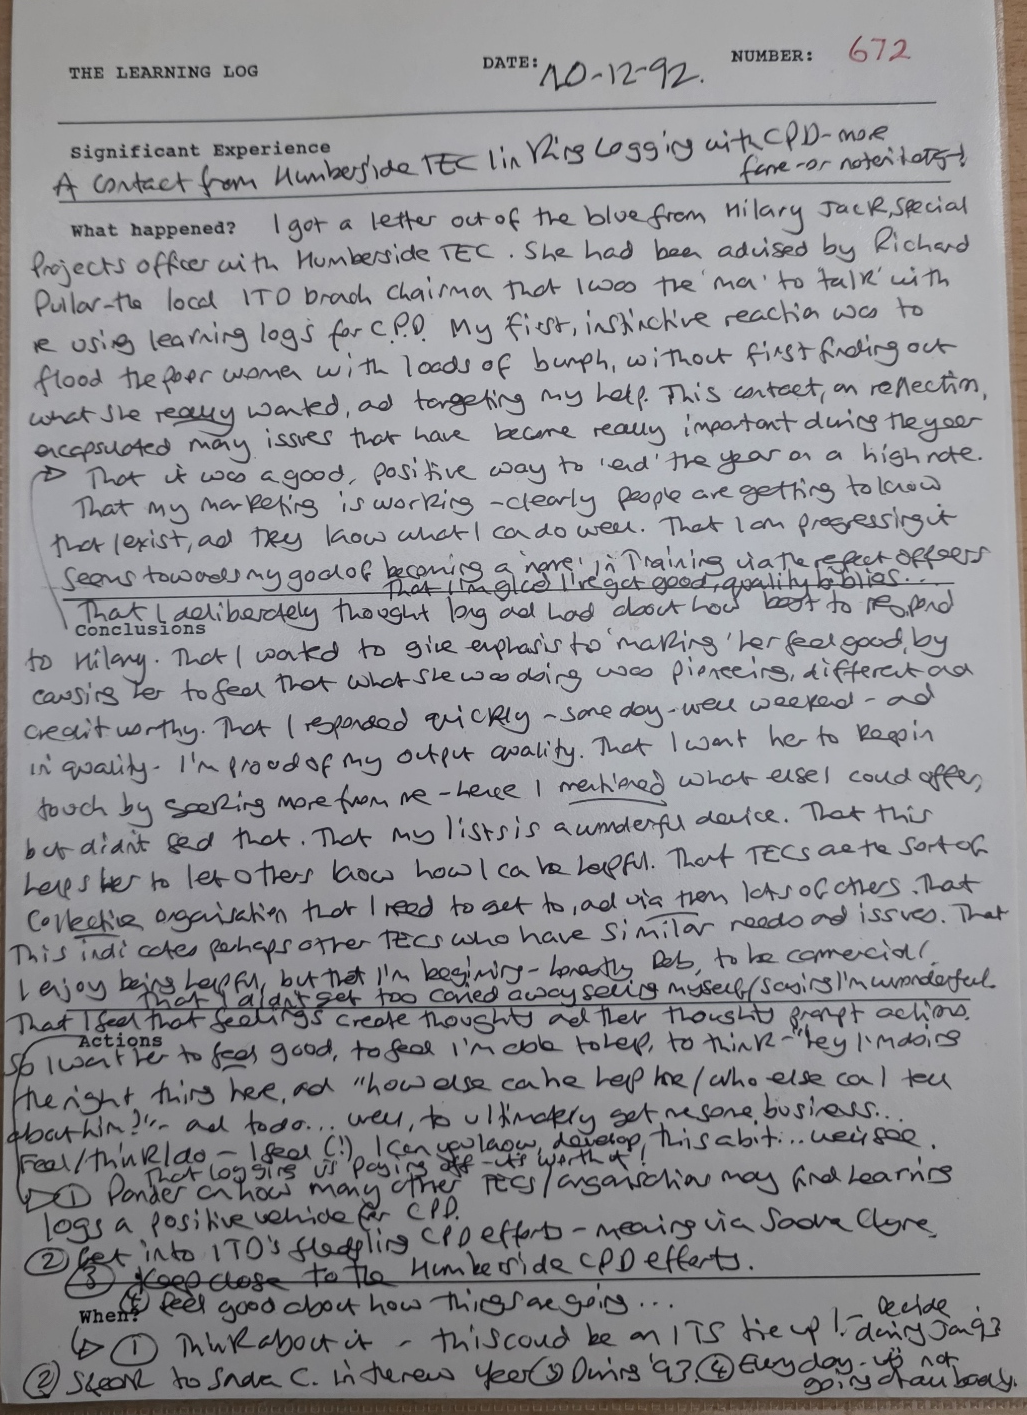 THE LEARNING LOG DATE: 20-12-92. NUMBER: 672
Significant Experience
A contact from Humberside TEC linking Logging with CPD - more
fame - or notoriety!
What happened? I got a letter out of the blue from Hilary Jack, Special
Projects officer with Humberside TEC. She had been advised by Richard
Pullar - the local ITD branch chairman that I was the 'man' to 'talk' with
re using learning logs for C.P.D. My first, instinctive reaction was to
flood the poor women with loads of bumph, without first finding out
what she really wanted, and targeting my help. This contact, on reflection,
encapsulated many issues that have become really important during the year
That it was a good, positive way to 'end' the year on a high note.
That my marketing is working - clearly people are getting to know
that I exist, and they know what I can do well. That I am progressing it
seems towards my goal of becoming a 'name' in Training via the
That I'm glad I've got good, quality
That I deliberately thought long and hard about how best to respond
Conclusions
to Hilary. That I wanted to give emphasis to 'making' her feel good, by
causing her to feel that what she was doing was pioneering, different and
credit worthy. That I responded quickly - same day - well weekend - and
in quality - I'm proud of my output quality. That I want her to keep in
touch by seeking more from me - hence I mentioned what else I could offer,
but didn't send that. That my lists is a wonderful device. That this
helps her to let others know how I can be helpful. That TECs are the sort of
collective organisation that I need to get to, and via them lots of others. That
This indicates perhaps other TECs who have similar needs and issues. That
I enjoy being helpful, but that I'm beginning - honestly Deb, to be commercial!
That I didn't get too carried away selling myself/saying I'm wonderful.
That I feel that feelings create thoughts and that thoughts prompt actions.
Actions
So I want her to feel good, to feel I'm able to help, to think - "hey I'm doing
the right thing here, and "how else can he help me / who else can I tell
about him?" - and to do... well, to ultimately get me some business...
Feel/think/do - I feel (!) I can you know, develop, this a bit... we'll see.
That logging is paying off - it's worth it!
① Ponder on how many other TECs/organisations may find Learning
logs a positive vehicle for CPD.
② Get into ITD's fledgling CPD efforts - meaning via Sandra Clyne
③ Keep close to the Humberside CPD efforts.
④ feel good about how things are going...
When?
① Think about it - this could be an ITS tie up! - Decide
during Jan 93
② Speak to Sandra C. in the new year ③ During '93. ④ Every day - up not
going down